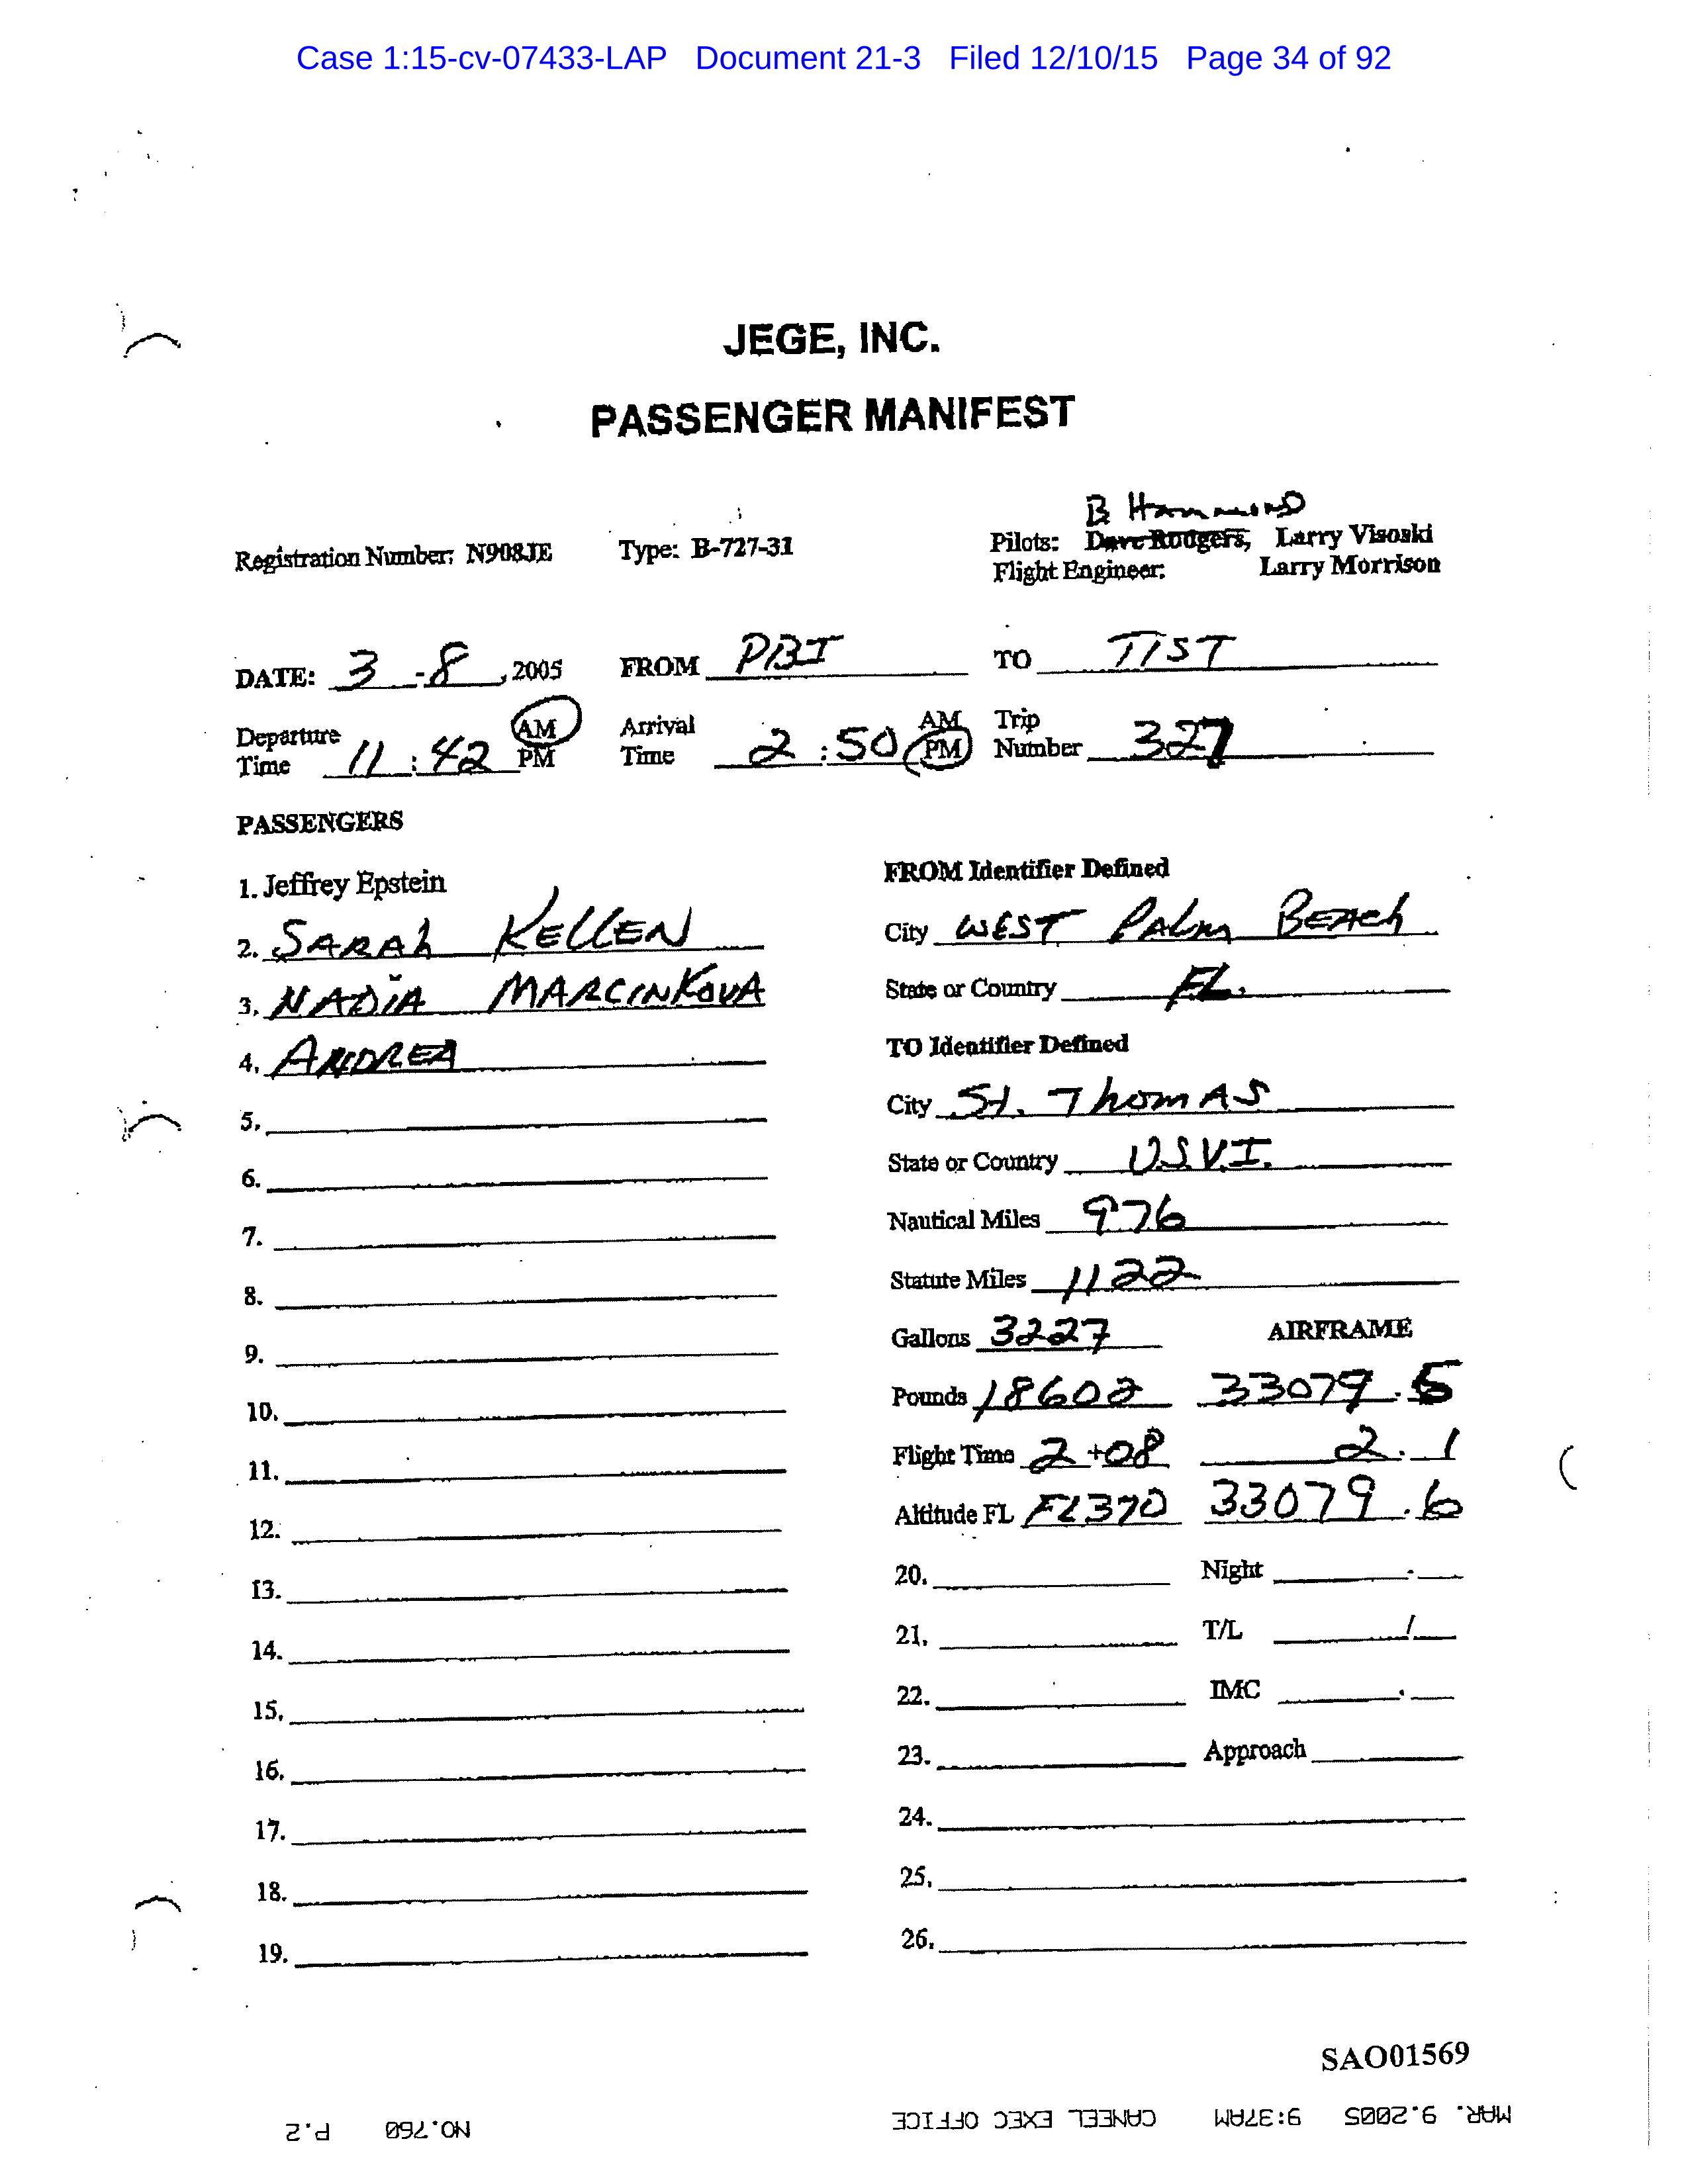 Case 1:15-cv-07433-LAP Document 21-3 Filed 12/10/15 Page 34 of 92
JEGE, INC.
PASSENGER MANIFEST
B Hammond
Registration Number: N908JE Type: B-727-31 Pilots: Dave Rodgers, Larry Visoski
Flight Engineer: Larry Morrison
DATE: 3-8, 2005 FROM PBI TO TIST
Departure Time 11:42 AM PM Arrival Time 2:50 AM PM Trip Number 327
PASSENGERS
1. Jeffrey Epstein
2. SARAh KELLEN
3. NADIA MARCINKOVA
4. ANDREA
5.
6.
7.
8.
9.
10.
11.
12.
13.
14.
15.
16.
17.
18.
19.
FROM Identifier Defined
City WEST PALm BEACh
State or Country FL.
TO Identifier Defined
City St. ThomAS
State or Country U.S.V.I.
Nautical Miles 976
Statute Miles 1122
Gallons 3227 AIRFRAME
Pounds 18602 33079.5
Flight Time 2+08 2.1
Altitude FL FL370 33079.6
20. Night
21. T/L 1
22. IMC
23. Approach
24.
25.
26.
SAO01569
MAR. 9.2005 9:37AM CANEEL EXEC OFFICE NO.760 P.2